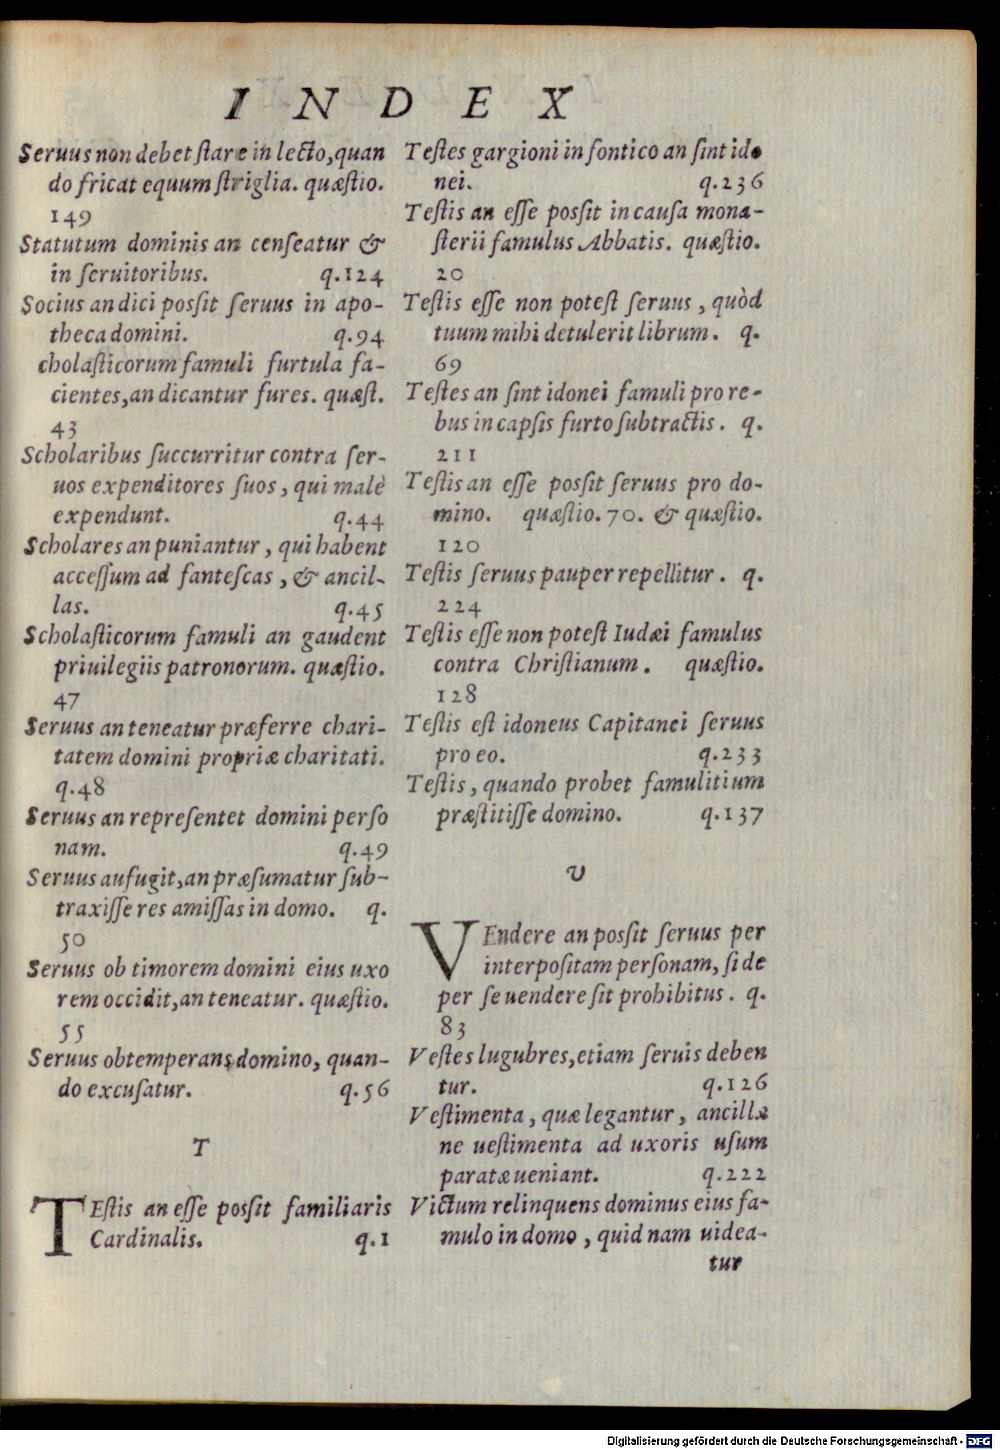 INDEX
Seruus non debet ſtare in lecto, quan
do fricat equum ſtriglia. quæſtio.
149
Statutum dominis an cenſeatur &
in ſeruitoribus. q.124
Socius an dici poſſit ſeruus in apo-
theca domini. q.94
cholaſticorum famuli furtula fa-
cientes, an dicantur fures. quæſt.
43
Scholaribus ſuccurritur contra ſer-
uos expenditores ſuos, qui malè
expendunt. q.44
Scholares an puniantur, qui habent
acceſſum ad fanteſcas, & ancil-
las. q.45
Scholaſticorum famuli an gaudent
priuilegiis patronorum. quæſtio.
47
Seruus an teneatur præferre chari-
tatem domini propriæ charitati.
q.48
Seruus an repreſentet domini perſo
nam. q.49
Seruus aufugit, an præſumatur ſub-
traxiſſe res amiſſas in domo. q.
50
Seruus ob timorem domini eius uxo
rem occidit, an teneatur. quæſtio.
55
Seruus obtemperans domino, quan-
do excuſatur. q.56
T
TEſtis an eſſe poſſit familiaris
Cardinalis. q.1
Teſtes gargioni in fontico an ſint ido
nei. q.236
Teſtis an eſſe poſſit in cauſa mona-
ſterii famulus Abbatis. quæſtio.
20
Teſtis eſſe non poteſt ſeruus, quòd
tuum mihi detulerit librum. q.
69
Teſtes an ſint idonei famuli pro re-
bus in capſis furto ſubtractis. q.
211
Teſtis an eſſe poſſit ſeruus pro do-
mino. quæſtio. 70. & quæſtio.
120
Teſtis ſeruus pauper repellitur. q.
224
Teſtis eſſe non poteſt Iudæi famulus
contra Chriſtianum. quæſtio.
128
Teſtis eſt idoneus Capitanei ſeruus
pro eo. q.233
Teſtis, quando probet famulitium
præſtitiſſe domino. q.137
V
VEndere an poſſit ſeruus per
interpoſitam perſonam, ſi de
per ſe uendere ſit prohibitus. q.
83
Veſtes lugubres, etiam ſeruis deben
tur. q.126
Veſtimenta, quæ legantur, ancillæ
ne ueſtimenta ad uxoris uſum
paratæ ueniant. q.222
Victum relinquens dominus eius fa-
mulo in domo, quid nam uidea-
tur
Digitalisierung gefördert durch die Deutsche Forschungsgemeinschaft - DFG